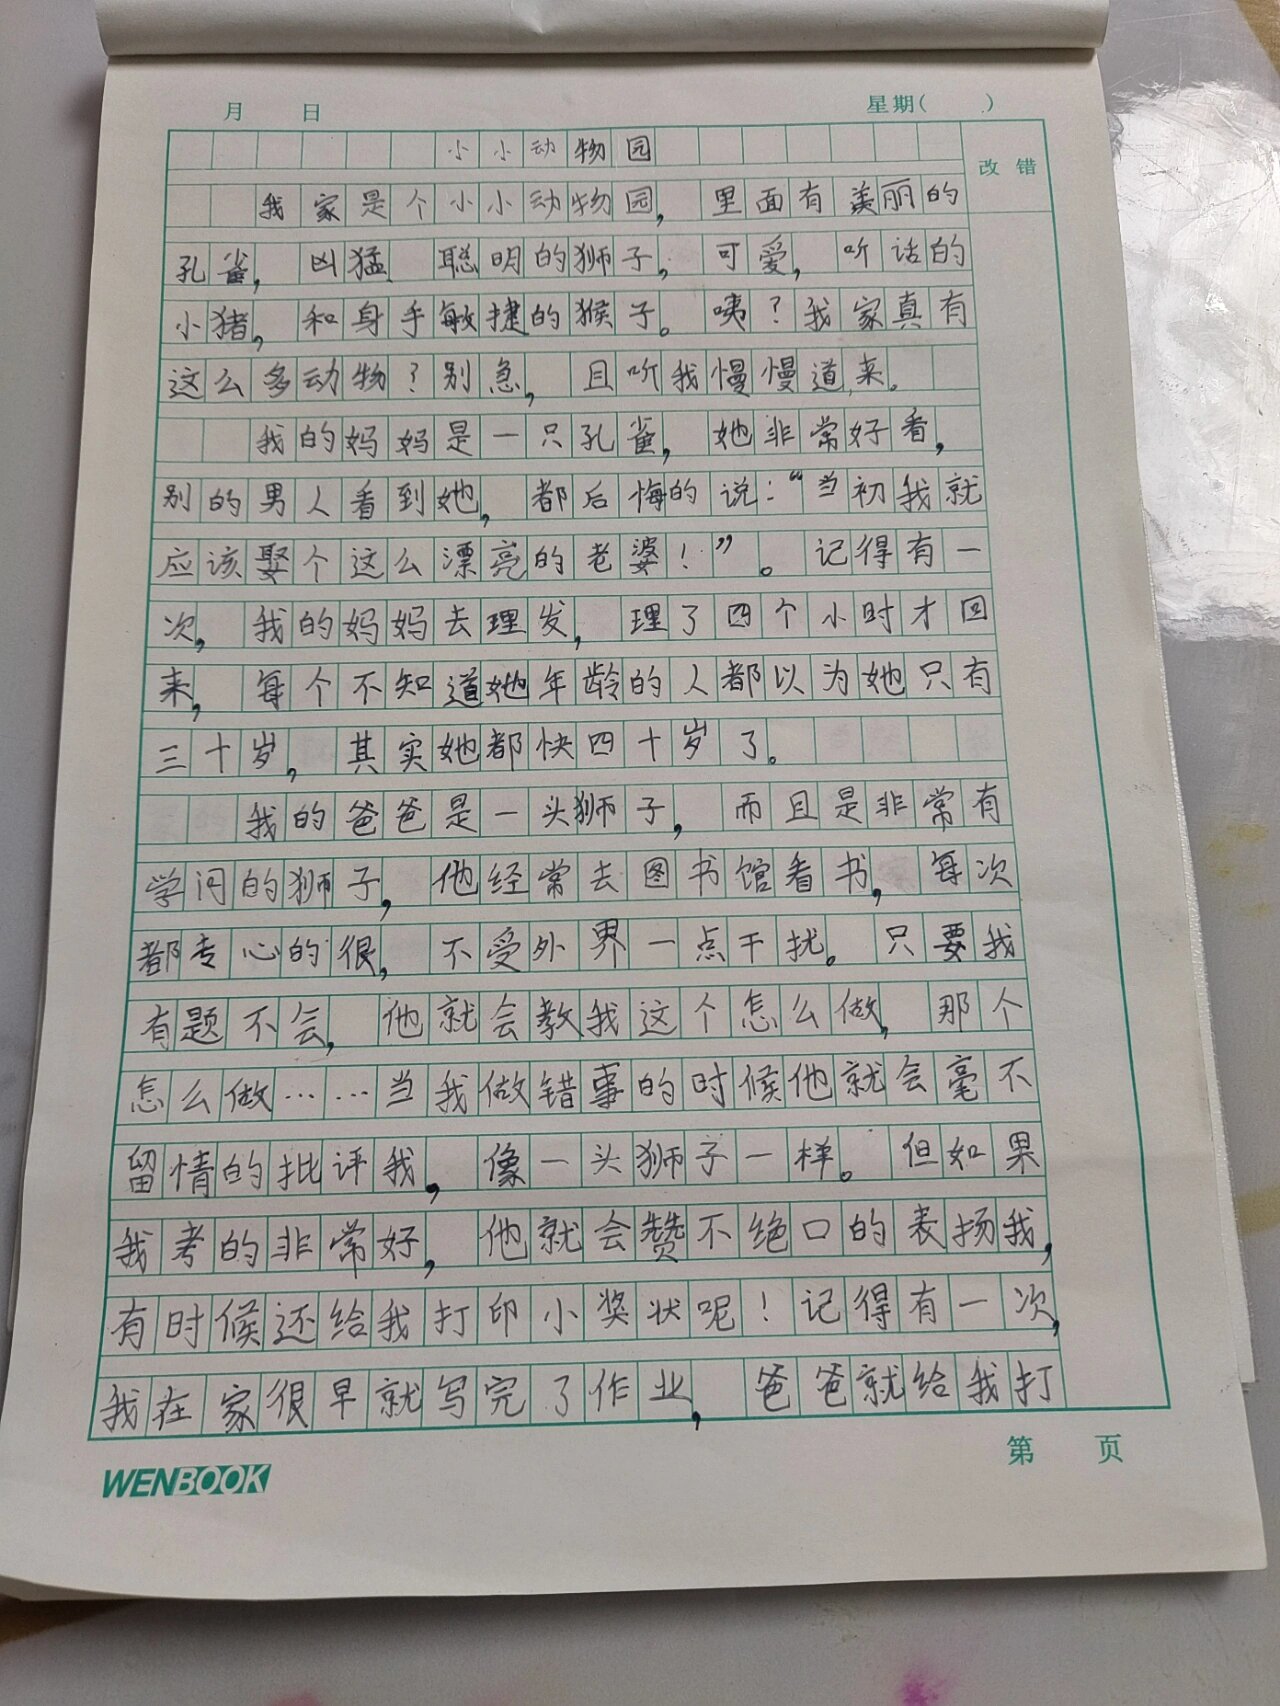 月 日 星期( )
小小动物园
改错
我家是个小小动物园,里面有美丽的
孔雀,凶猛、聪明的狮子,可爱,听话的
小猪,和身手敏捷的猴子。咦?我家真有
这么多动物?别急,且听我慢慢道来。
我的妈妈是一只孔雀,她非常好看,
别的男人看到她,都后悔的说:“当初我就
应该娶个这么漂亮的老婆!”。记得有一
次,我的妈妈去理发,理了四个小时才回
来,每个不知道她年龄的人都以为她只有
三十岁,其实她都快四十岁了。
我的爸爸是一头狮子,而且是非常有
学问的狮子,他经常去图书馆看书,每次
都专心的很,不受外界一点干扰。只要我
有题不会,他就会教我这个怎么做,那个
怎么做……当我做错事的时候他就会毫不
留情的批评我,像一头狮子一样。但如果
我考的非常好,他就会赞不绝口的表扬我,
有时候还给我打印小奖状呢!记得有一次,
我在家很早就写完了作业,爸爸就给我打
第 页
WENBOOK